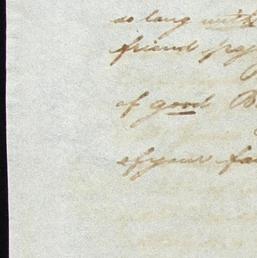 so long with
friend
of good B
of your fa